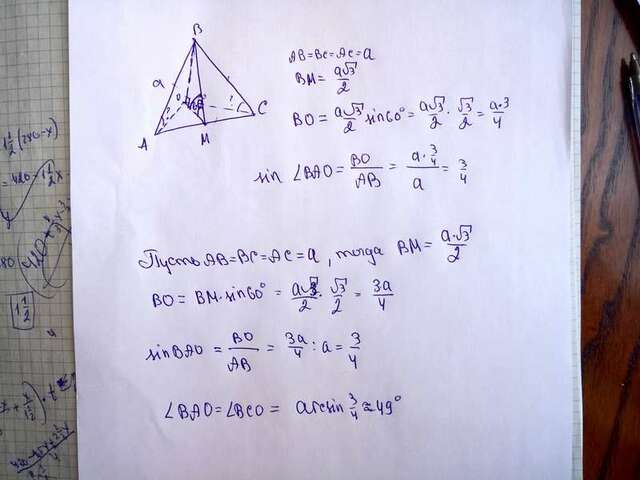 B
a
A
M
C
AB=BC=AC=a
BM= a√3/2
BO= a√3/2 sin60°= a√3/2 · √3/2 = a·3/4
sin ∠BAO= BO/AB = (a·3/4)/a = 3/4
Пусть AB=BC=AC=a, тогда BM= a·√3/2
BO= BM·sin60°= a√3/2 · √3/2 = 3a/4
sinBAO= BO/AB = 3a/4 : a= 3/4
∠BAO=∠BCO= arcsin 3/4 ≈49°
1 1/2